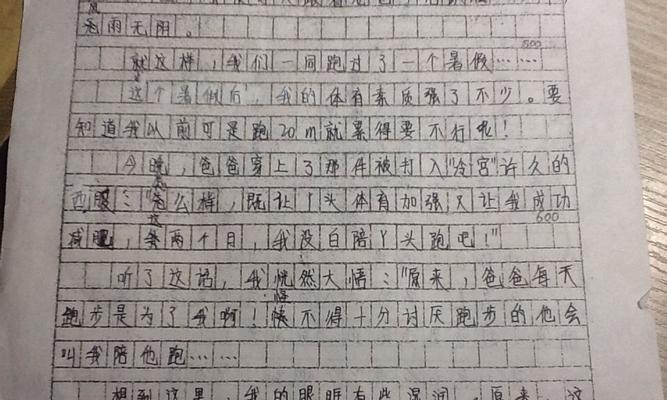 风雨无阻。
就这样，我们一同跑过了一个暑假……
500
这个暑假后，我的体育素质强了不少。要
知道我以前可是跑20m就累得要不行呢！
今晚，爸爸穿上了那件被打入“冷宫”许久的
西服：“怎么样，既让丫头体育加强又让我成功
600
减肥，这两个月，我没白陪丫头跑吧！”
听了这话，我恍然大悟：“原来，爸爸每天
跑步是为了我啊！怪不得十分讨厌跑步的他会
叫我陪他跑……
想到这里，我的眼眶有些湿润。原来，这